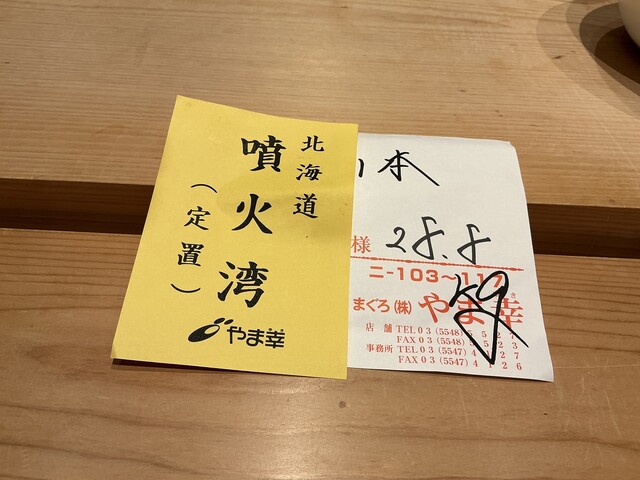 北海道
噴火湾
(定置)
やま幸
本
様 28.8
ニ-103～117
まぐろ(株) やま幸
店舗 TEL03(5548)
FAX03(5548)
事務所 TEL03(5547)
FAX03(5547)